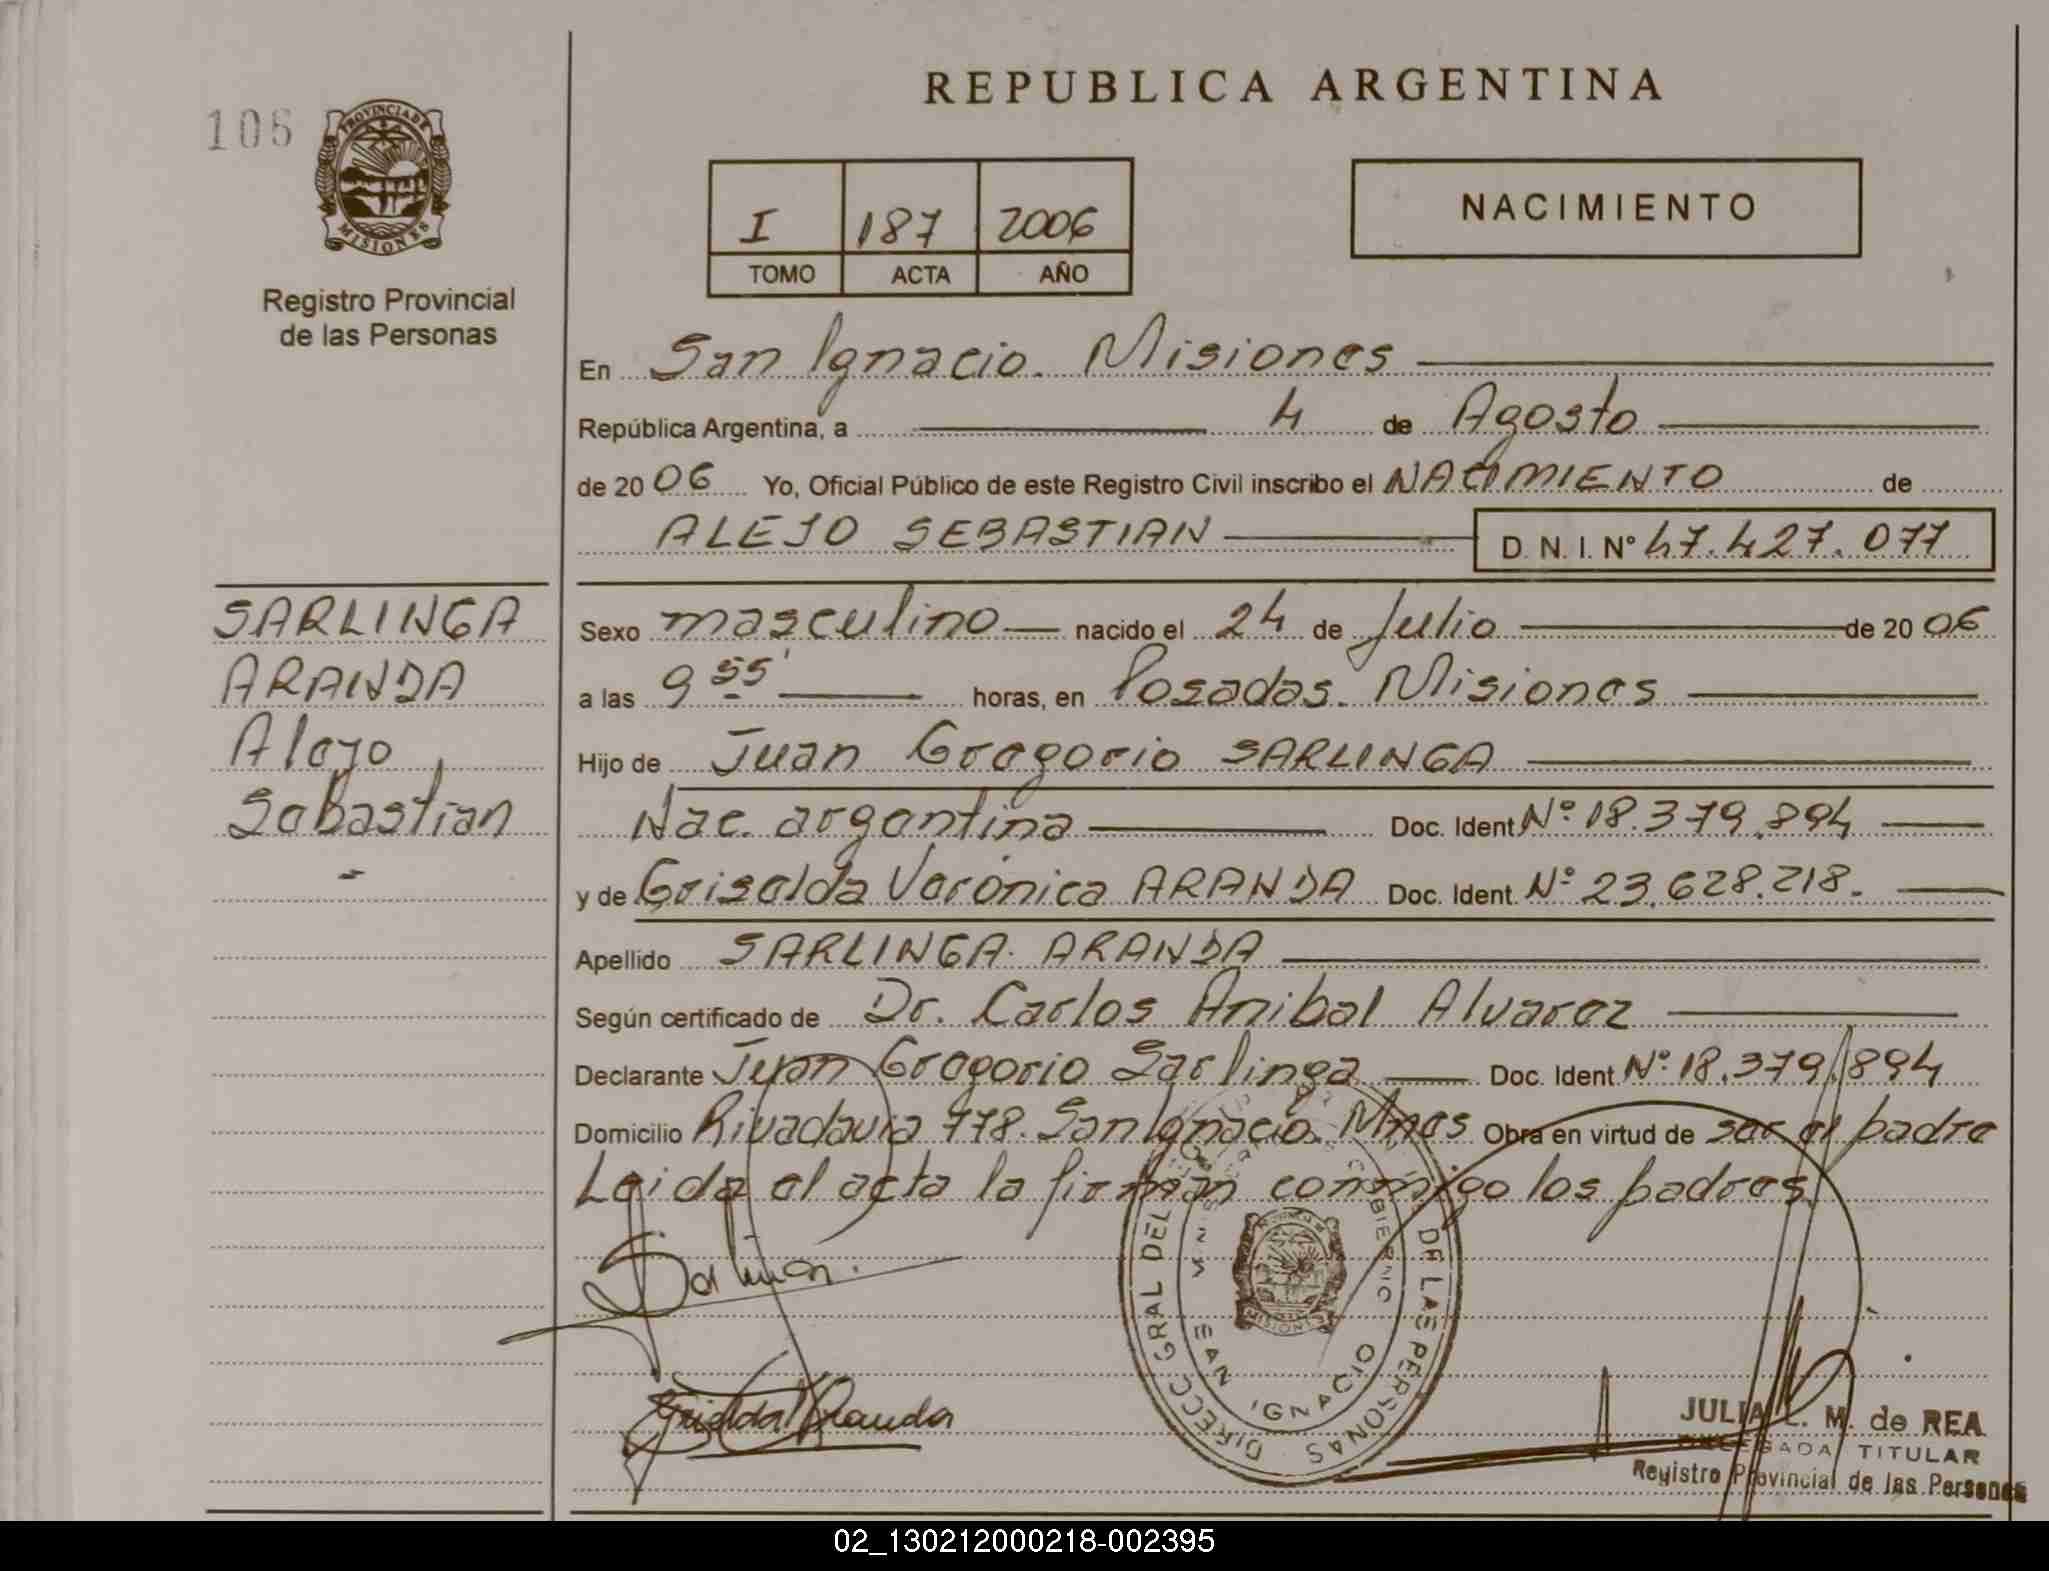 REPUBLICA ARGENTINA
106
PROVINCIA DE MISIONES
Registro Provincial
de las Personas
I 187 2006
TOMO ACTA AÑO
NACIMIENTO
En San Ignacio. Misiones
República Argentina, a 4 de Agosto
de 2006 Yo, Oficial Público de este Registro Civil inscribo el NACIMIENTO de
ALEJO SEBASTIAN D. N. I. N° 47.427.077
SARLINGA
ARANDA
Alejo
Sebastian
Sexo masculino nacido el 24 de Julio de 2006
a las 9 55' horas, en Posadas. Misiones
Hijo de Juan Gregorio SARLINGA
Nac. argentina Doc. Ident. N° 18.379.894
y de Griselda Verónica ARANDA Doc. Ident. N° 23.628.218.
Apellido SARLINGA. ARANDA
Según certificado de Dr. Carlos Anibal Alvarez
Declarante Juan Gregorio Sarlinga Doc. Ident. N° 18.379.894
Domicilio Rivadavia 778. San Ignacio. Mnes Obra en virtud de ser el padre
Leida el acta la firman conmigo los padres
DIRECC GRAL DEL DE LAS PERSONAS
SAN IGNACIO
MISIONES
Griselda Aranda
JULIA L. M. de REA
DELEGADA TITULAR
Registro Provincial de las Personas
02_130212000218-002395